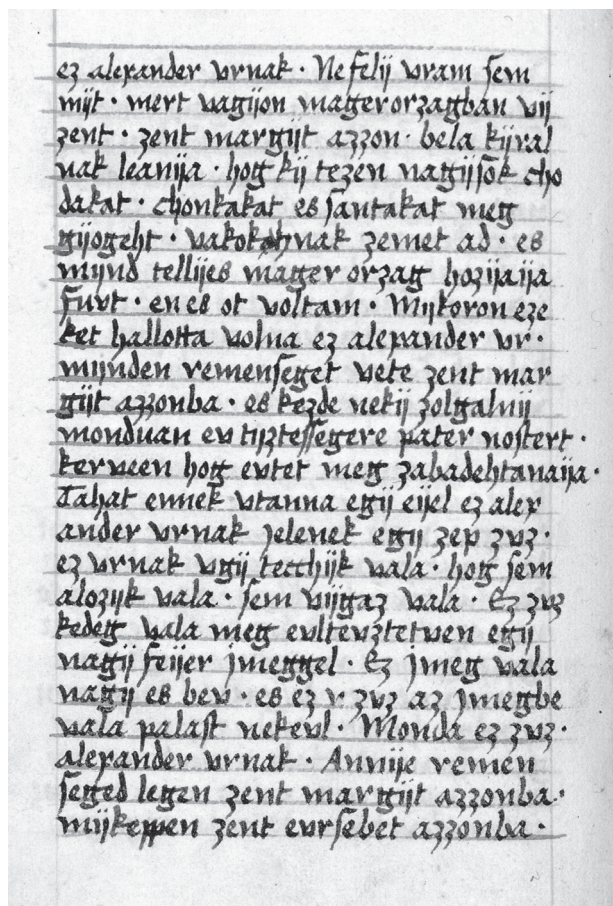 ez alexander vrnak · Ne felij vram sem
mijt · mert vagijon mager orzagban vij
zent · zent margijt azzon · bela kijral
nak leanija · hog kij tezen nagij sok cho
dakat · chonkakat es santakat meg
gijogeht · vakoknak zemet ad · es
mijnd tellijes mager orzag hozijaija
futt · en es ot voltam · Mijkoron eze
ket hallotta volna ez alexander vr ·
mijnden remenseget vete zent mar
gijt azzonba · es kezde nekij zolgalnij
monduan ev tijztessegere pater nostert ·
kerveen hog evtet meg zabadehtanaija ·
Tahat ennek vtanna egij eijel ez alex
ander vrnak jelenek egij zep zvz ·
ez vrnak vgij tecchijk vala · hog sem
alozijk vala · sem vijgaz vala · Ez zvz
kedeg vala meg evltevztetven egij
nagij feijer jmeggel · Ez jmeg vala
nagij es bev · es ez v zvz az jmegbe
vala palast nekevl · Monda ez zvz ·
alexander vrnak · Annije remen
seged legen zent margijt azzonba ·
mijkeppen zent evrsebet azzonba ·